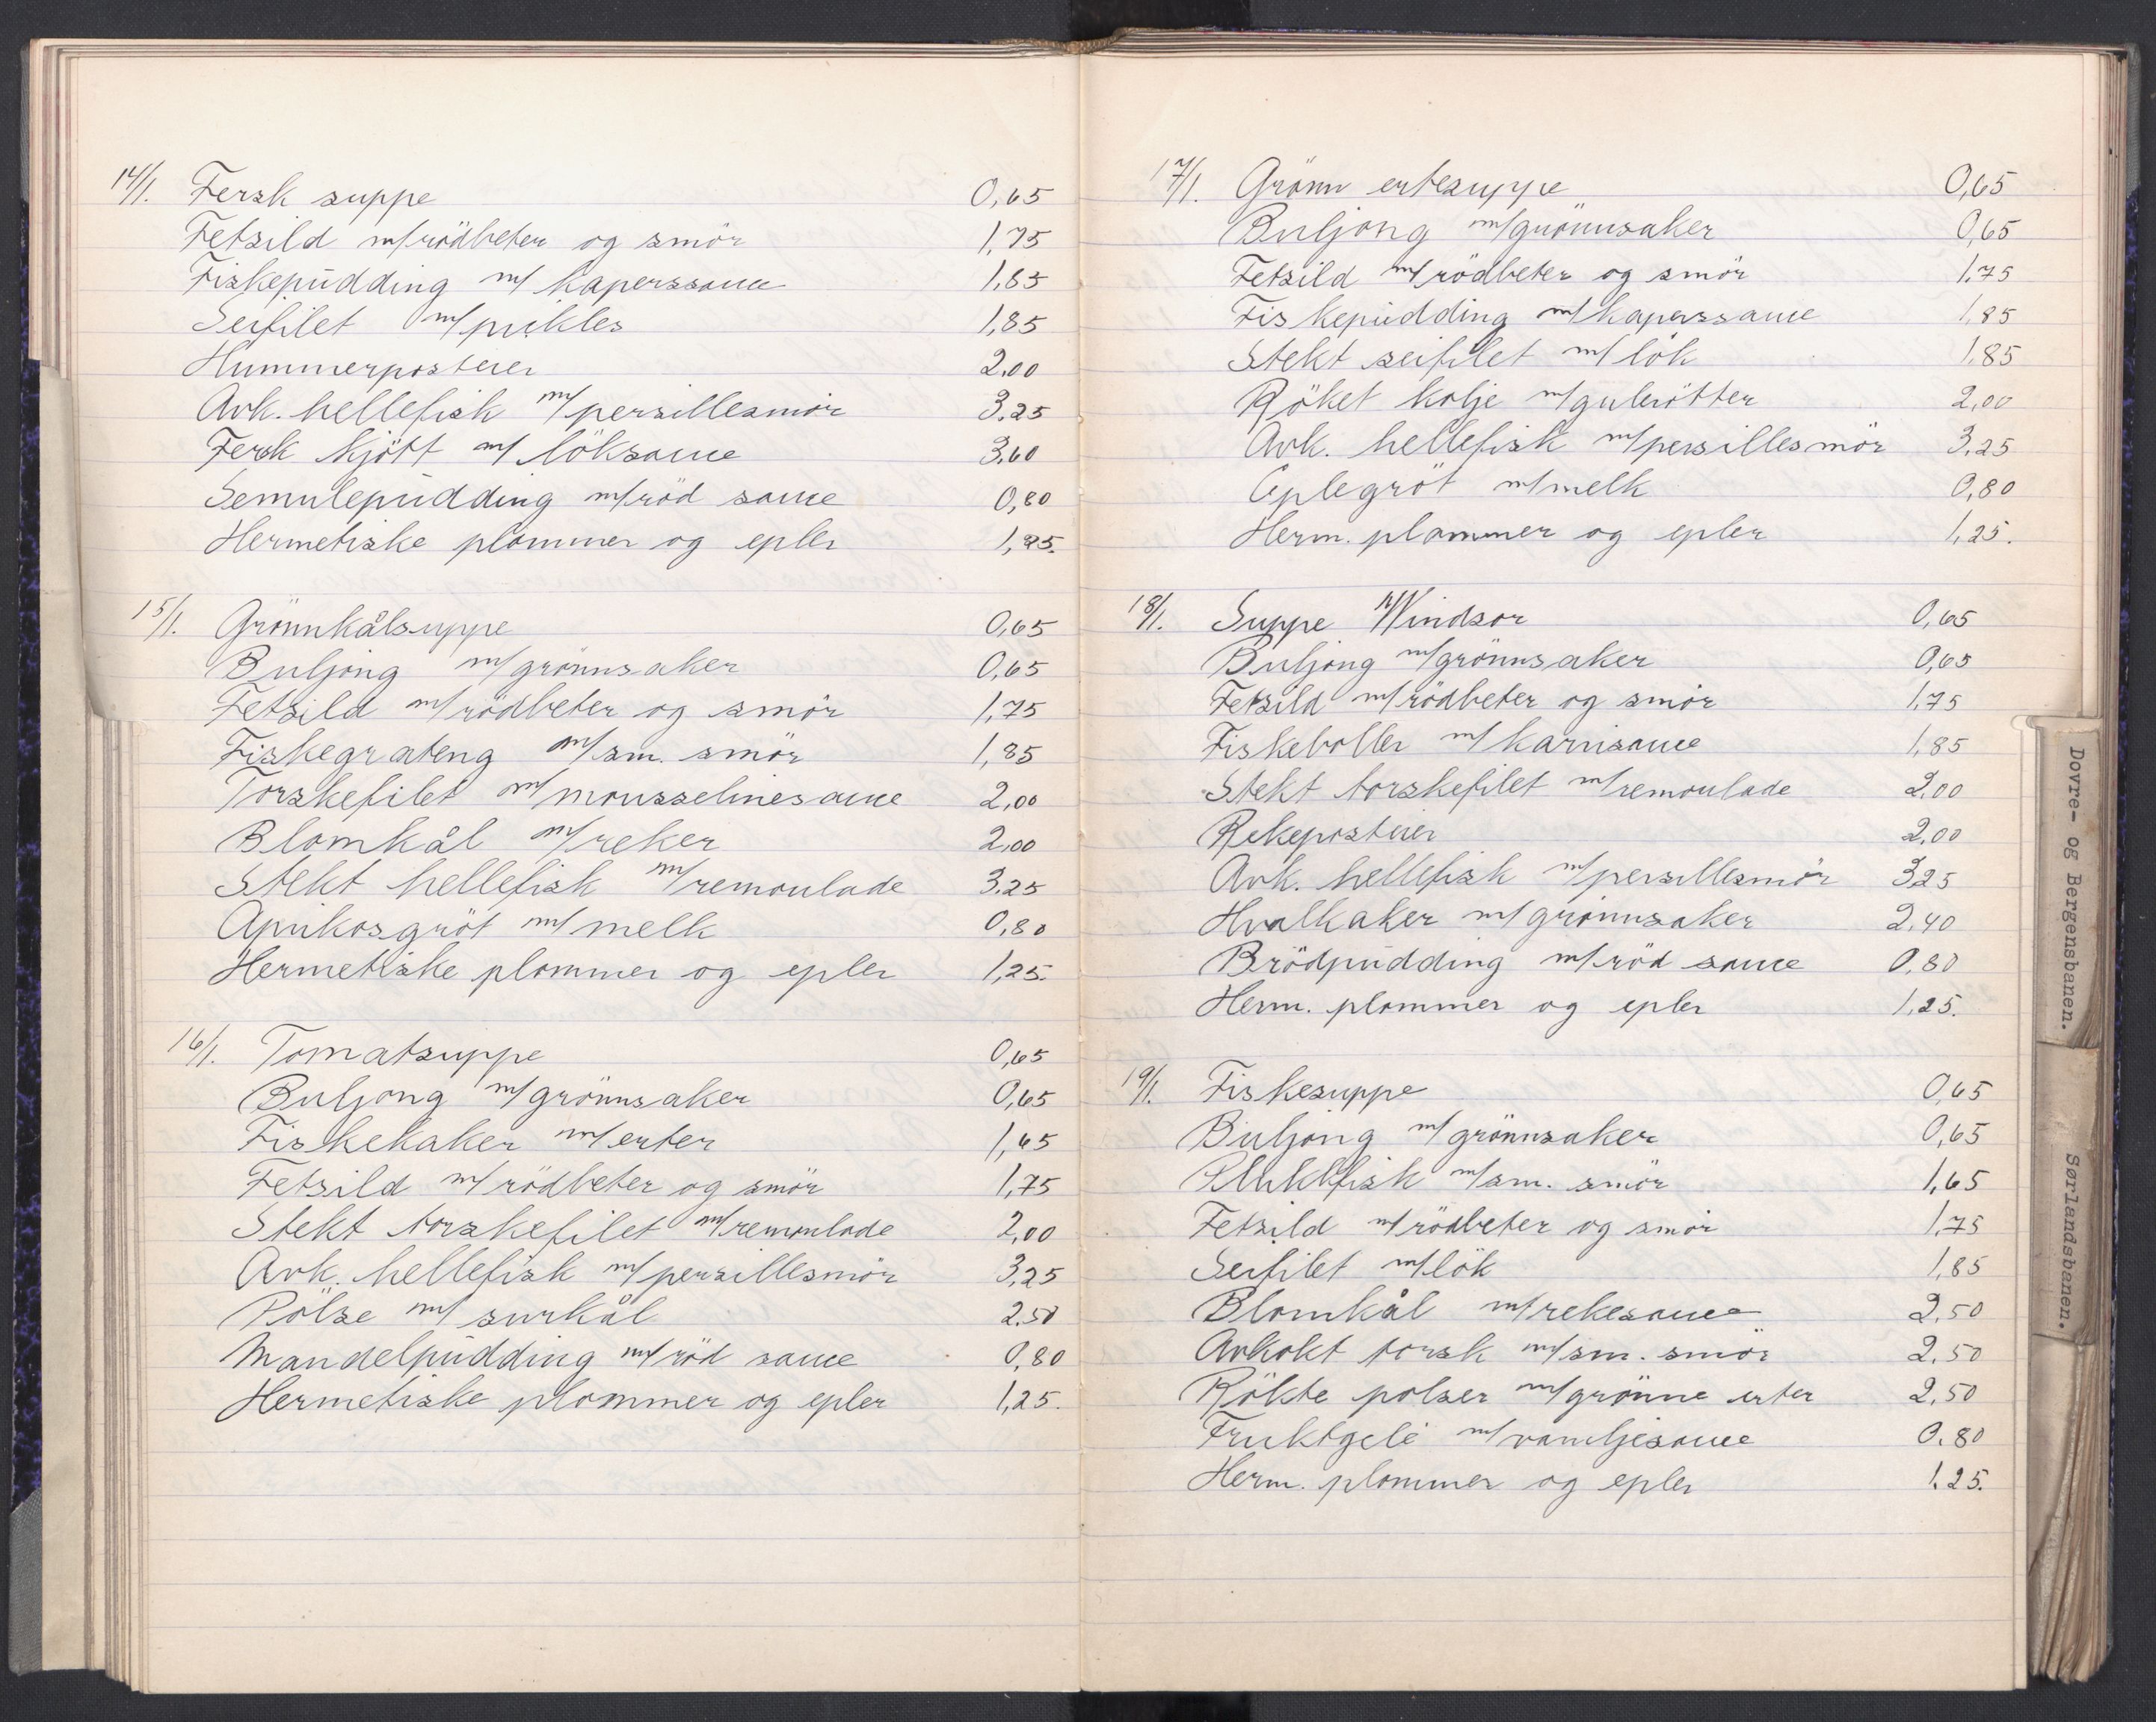 14/1. Fersk suppe 0,65
Fetsild m/rödbeter og smör 1,75
Fiskepudding m/ kaperssauce 1,85
Seifilet m/pickles 1,85
Hummerposteier 2.00
Avk. hellefisk m/persillesmör 3,25
Fersk kjött m/ löksauce 3,60
Semulepudding m/röd sauce 0,80
Hermetiske plommer og epler 1,25.
15/1. Grönnkålsuppe 0,65
Buljong m/grönnsaker 0,65
Fetsild m/rödbeter og smör 1,75
Fiskegrateng m/sm. smör 1,85
Torskefilet m/mousselinesauce 2,00
Blomkål m/reker 2.00
Stekt hellefisk m/remoulade 3.25
Aprikosgröt m/melk 0,80
Hermetiske plommer og epler 1,25.
16/1. Tomatsuppe 0,65
Buljong m/grönnsaker 0,65
Fiskekaker m/erter 1,65
Fetsild m/rödbeter og smör 1,75
Stekt torskefilet m/remoulade 2,00
Avk. hellefisk m/persillesmör 3,25
Pölse m/ surkål 2.50
Mandelpudding m/röd sauce 0,80
Hermetiske plommer og epler 1,25.
17/1. Grönn ertesuppe 0,65
Buljong m/grönnsaker 0,65
Fetsild m/rödbeter og smör 1.75
Fiskepudding m/kaperssauce 1,85
Stekt seifilet m/lök 1.85
Röket kolje m/gulerötter 2,00
Avk. hellefisk m/persillesmör 3,25
Eplegröt m/melk 0,80
Herm. plommer og epler 1,25.
18/1. Suppe Windsor 0,65
Buljong m/grönnsaker 0,65
Fetsild m/rödbeter og smör 1,75
Fiskeboller m/karrisauce 1,85
Stekt torskefilet m/remoulade 2,00
Rekeposteier 2,00
Avk. hellefisk m/persillesmör 325
Hvalkaker m/grönnsaker 2,40
Brödpudding m/röd sauce 0,80
Herm. plommer og epler 1,25.
19/1. Fiskesuppe 0,65
Buljong m/grönnsaker 0,65
Plukkfisk m/sm. smör 1,65
Fetsild m/rödbeter og smör 1,75
Seifilet m/lök 1,85
Blomkål m/rekesauce 2,50
Avkokt torsk m/sm. smör 2,50
Rökte pölser m/grönne erter 2,50
Fruktgelé m/vaniljesauce 0.80
Herm. plommer og epler 1.25.
Dovre- og Bergensbanen.
Sørlandsbanen.